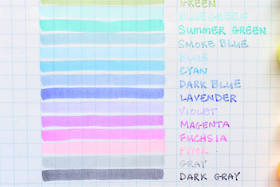 GREEN
BLUE GREEN
SUMMER GREEN
SMOKE BLUE
CYAN
DARK BLUE
LAVENDER
VIOLET
MAGENTA
FUCHSIA
GRAY
DARK GRAY